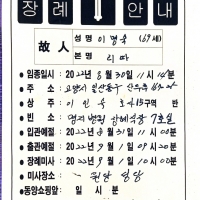 장례 안내
故人
성명 이명욱 (69세)
본명 리따
• 임종일시 : 2022년 8월 30일 11시 14분
• 주소 : 고양시 일산동구
• 상주 : 이인욱 415구역 반
• 빈소 : 병원 장례식장 7호실
• 입관예절 : 2022년 8월 31일 11시 00분
• 출관예절 : 2022년 9월 1일 09시 20분
• 장례미사 : 2022년 9월 1일 10시 00분
• 미사장소 : 원당 성당
• 동양소핑앞 일 시 분